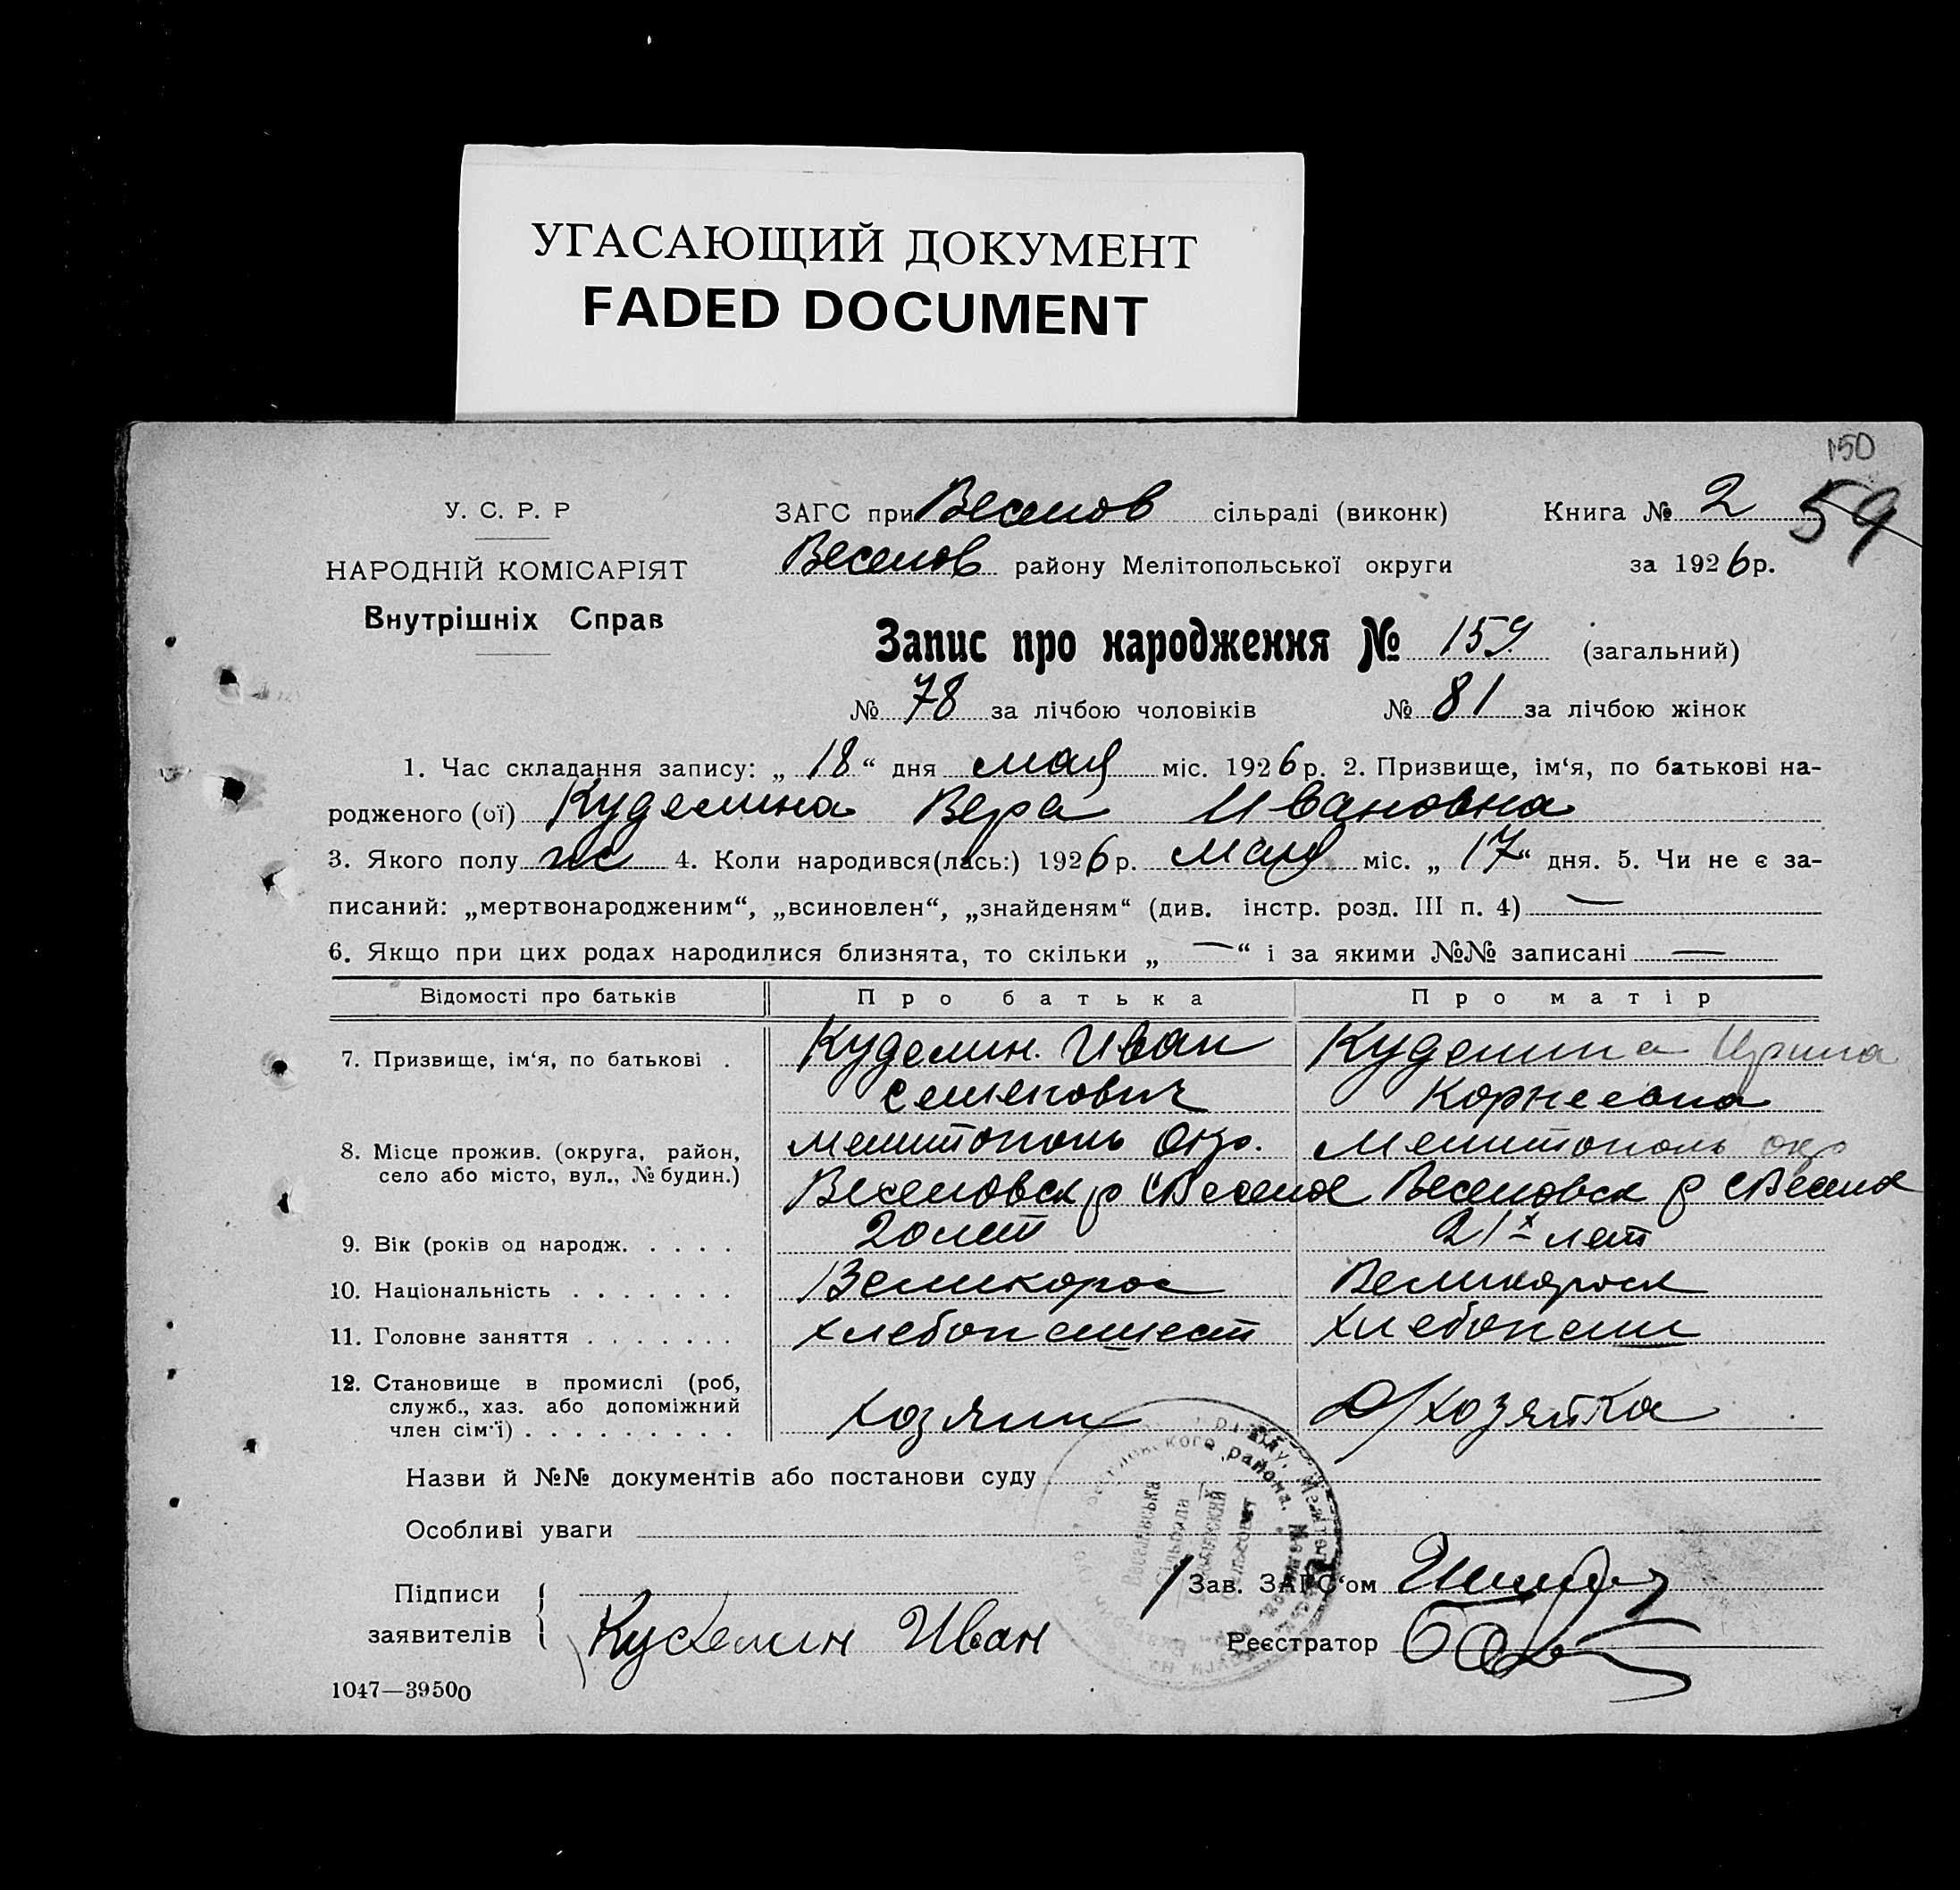 УГАСАЮЩИЙ ДОКУМЕНТ
FADED DOCUMENT
150
59
У. С. Р. Р
НАРОДНІЙ КОМІСАРІЯТ
Внутрішніх Справ
ЗАГС при Веселов сільраді (виконк) Книга № 2
Веселов району Мелітопольської округи за 1926 р.
Запис про народження № 159 (загальний)
№ 78 за лічбою чоловіків № 81 за лічбою жінок
1. Час складання запису: „ 18 “ дня мая міс. 1926 р. 2. Призвище, ім‘я, по батькові на-
родженого (ої) Куделина Вера Ивановна
3. Якого полу жс 4. Коли народився(лась:) 1926 р. мая міс. „ 17 “ дня. 5. Чи не є за-
писаний: „мертвонародженим“, „всиновлен“, „знайденям“ (див. інстр. розд. III п. 4) —
6. Якщо при цих родах народилися близнята, то скільки „ — “ і за якими №№ записані —
Відомості про батьків Про батька Про матір
7. Призвище, ім‘я, по батькові . Куделин. Иван Куделина Ирина
Семенович Корнеевна
8. Місце прожив. (округа, район, Мелитополь окр. Мелитополь окр
село або місто, вул., № будин.) Веселовск р с Веселое Веселовск р с Веселое
9. Вік (років од народж. . . . . 20 лет 21х лет
10. Національність . . . . . . . Великорос Великороск
11. Головне заняття . . . . . . . Хлебопашест Хлебопаш
12. Становище в промислі (роб,
служб., хаз. або допоміжний хозяин Д/хозяйка
член сім‘ї) . . . . . . . . .
Назви й №№ документів або постанови суду
Особливі уваги
Веселівська
Сільрада
Сельсовет
района
Підписи Зав. ЗАГС‘ом
заявителів Куделин Иван Реєстратор
1047—39500